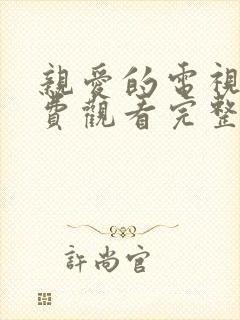 親愛的電視
費觀看完整
許尚官